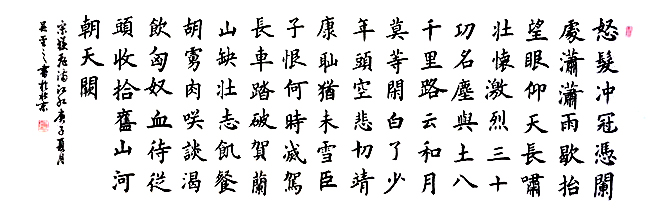 怒髮冲冠憑闌
處瀟瀟雨歇抬
望眼仰天長嘯
壯懷激烈三十
功名塵與土八
千里路云和月
莫等閑白了少
年頭空悲切靖
康耻猶未雪臣
子恨何時滅駕
長車踏破賀蘭
山缺壯志飢餐
胡虜肉咲談渴
飲匈奴血待從
頭收拾舊山河
朝天闕
宋岳飛滿江紅庚子夏月
書於北京